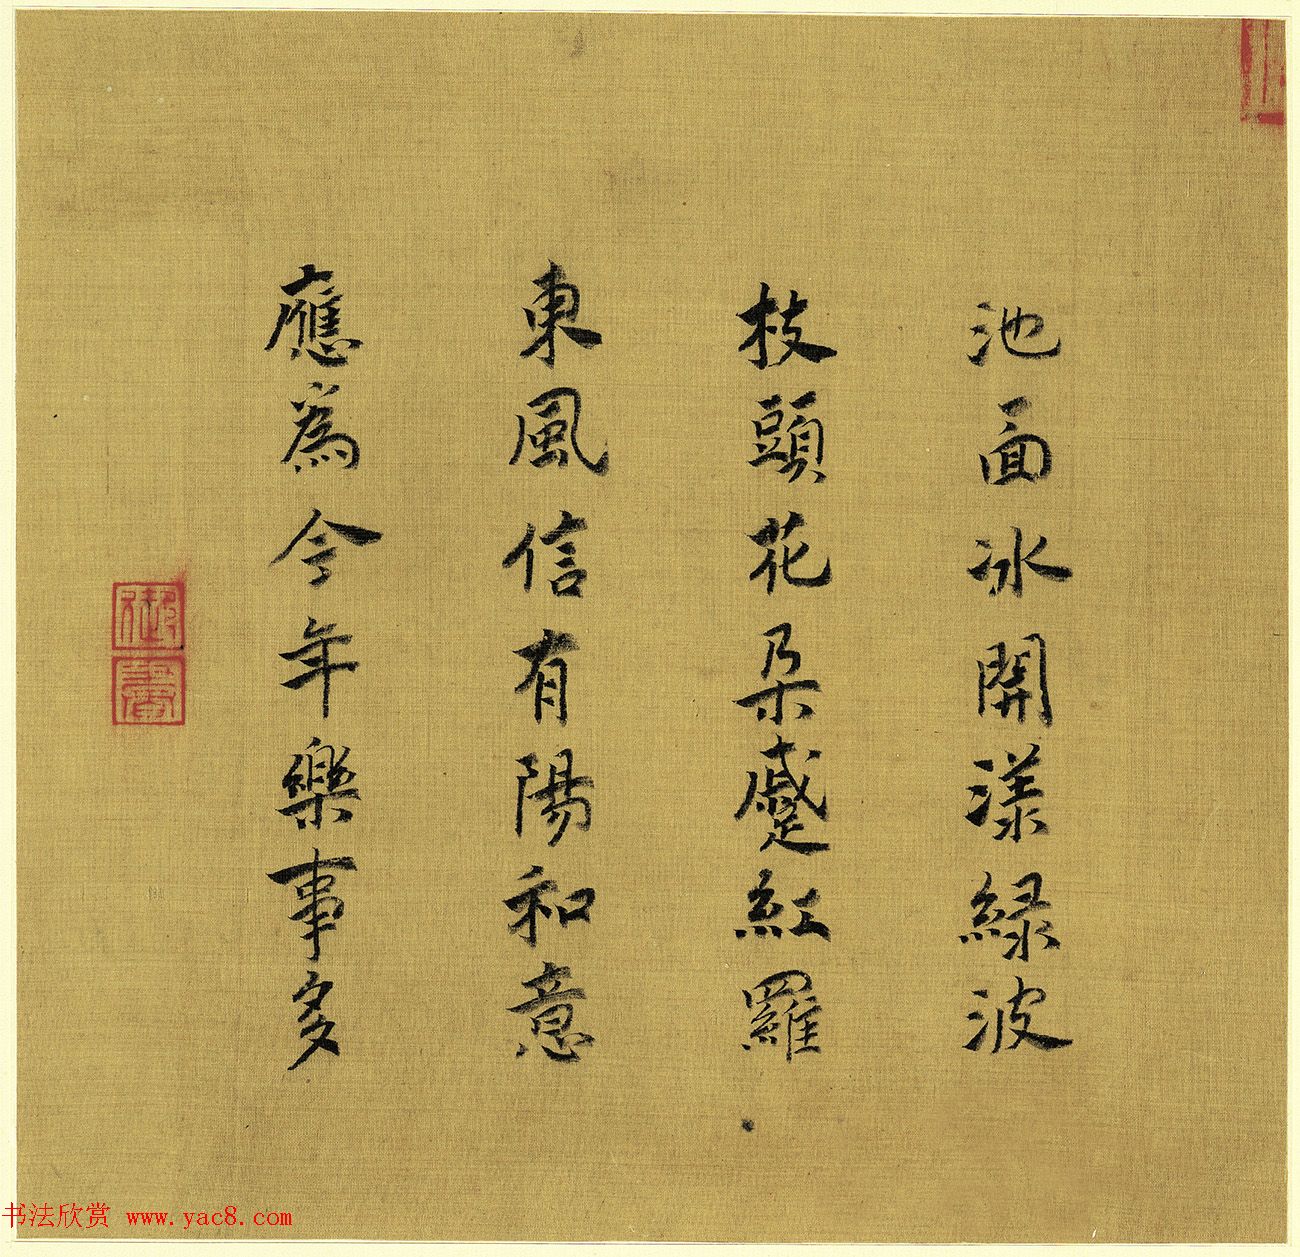 池面冰開漾緑波
枝頭花朶蹙紅羅
東風信有陽和意
應為今年樂事多
御書
书法欣赏 www.yac8.com